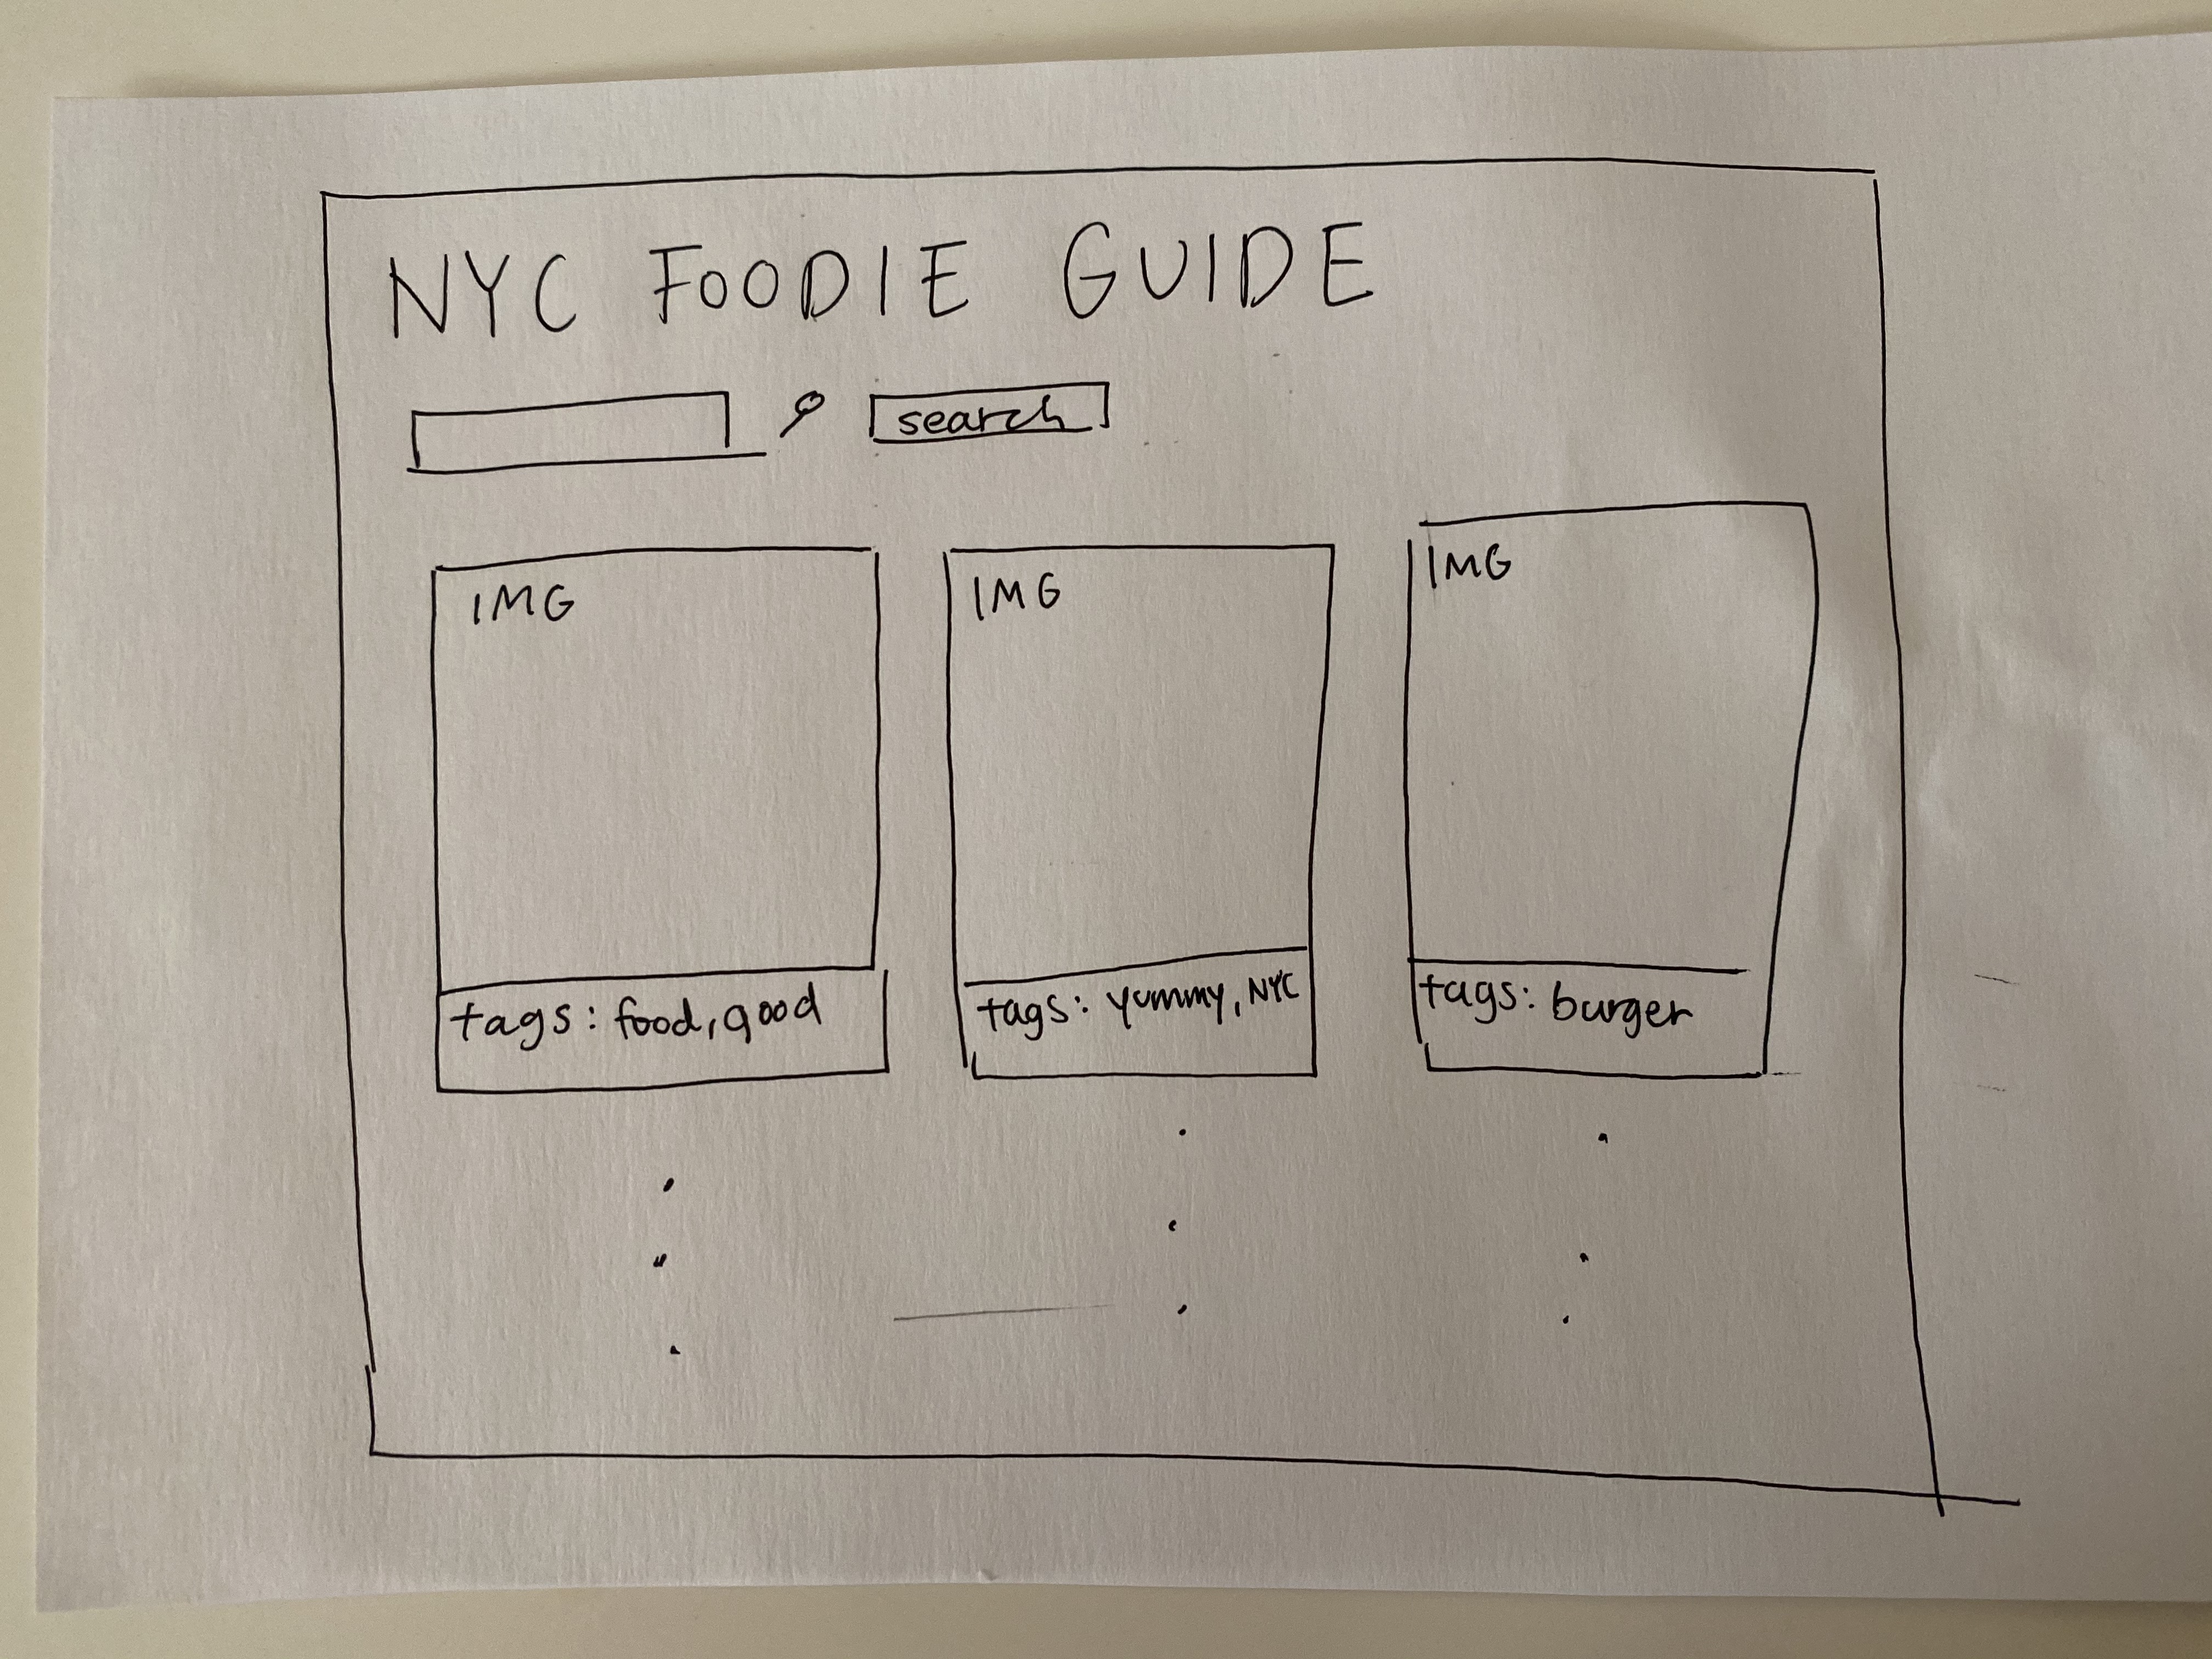 NYC FOODIE GUIDE
search
IMG
IMG
IMG
tags: food, good
tags: yummy, NYC
tags: burger